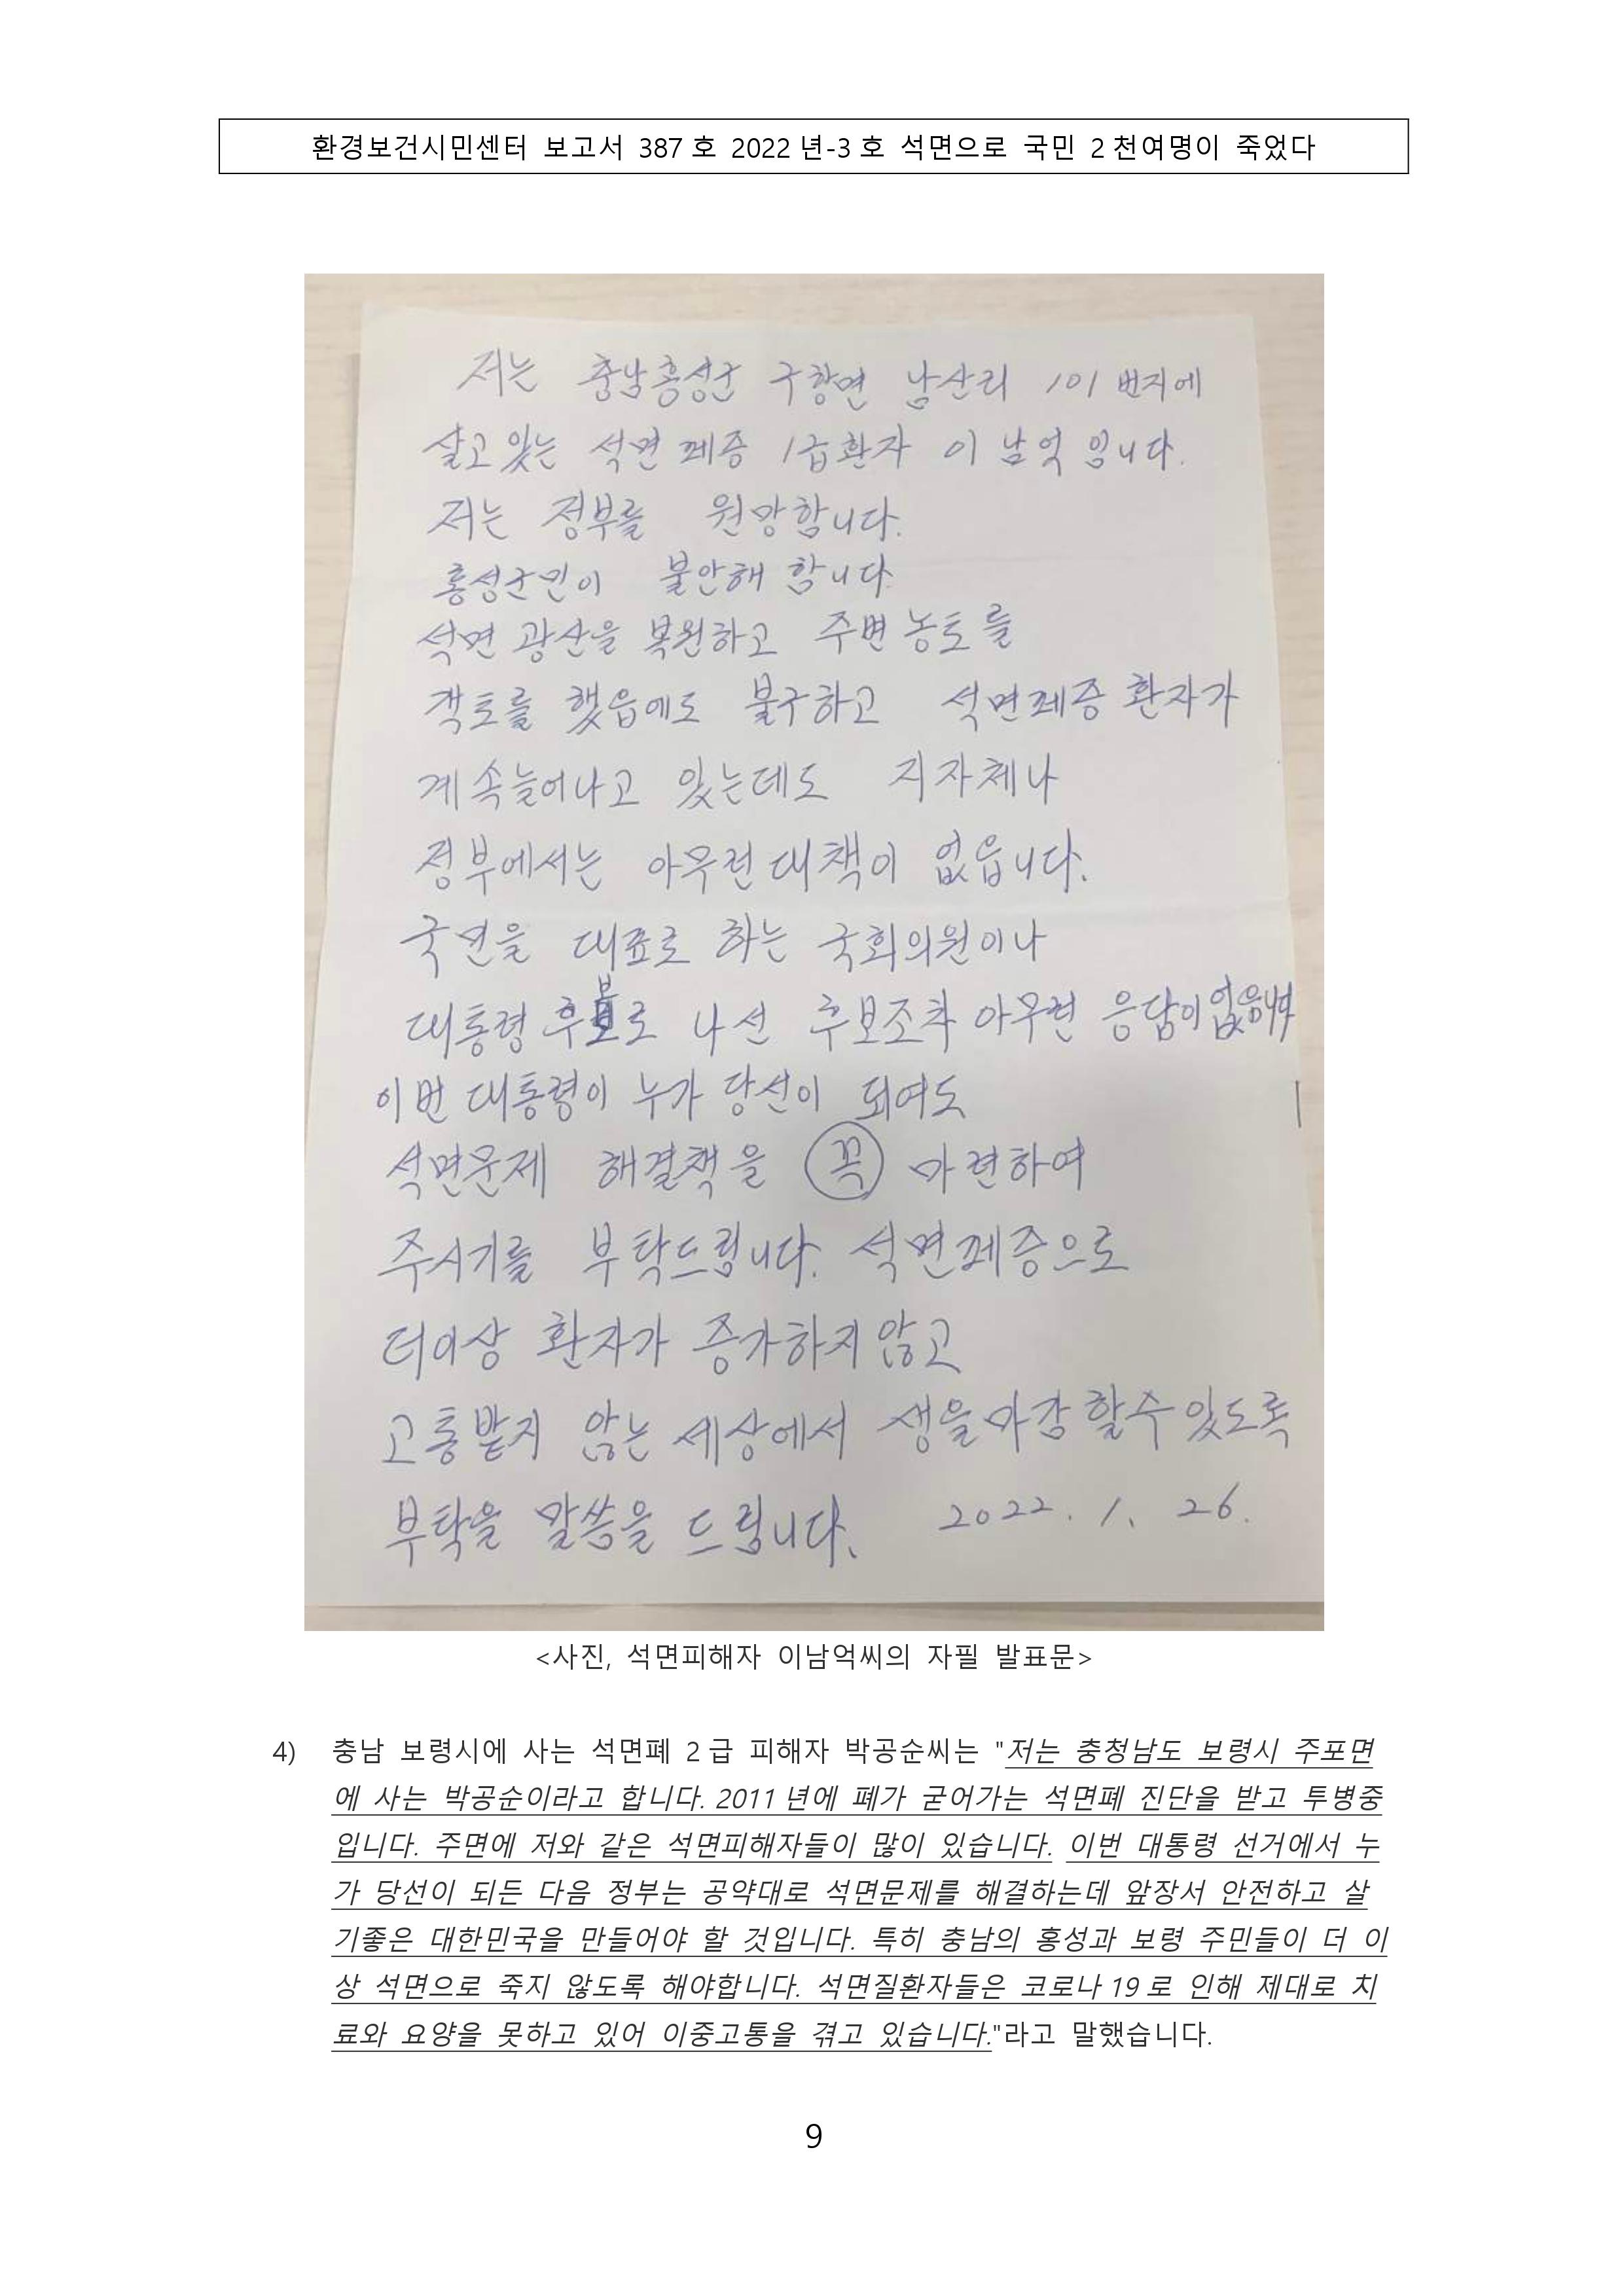 환경보건시민센터 보고서 387호 2022년-3호 석면으로 국민 2천여명이 죽었다
저는 충남홍성군 구항면 남산리 101번지에
살고있는 석면폐증 1급환자 이남억 입니다.
저는 정부를 원망합니다.
홍성군민이 불안해 합니다.
석면 광산을 복원하고 주변 농토를
객토를 했읍에도 불구하고 석면폐증 환자가
계속늘어나고 있는데도 지자체나
정부에서는 아무런대책이 없읍니다.
국민을 대표로 하는 국회의원이나
대통령 후보로 나선 후보조차 아무런 응답이없읍니다
이번 대통령이 누가 당선이 되여도
석면문제 해결책을 꼭 마련하여
주시기를 부탁드립니다. 석면폐증으로
더이상 환자가 증가하지않고
고통받지 않는세상에서 생을마감할수있도록
부탁을 말씀을 드립니다. 2022. 1. 26.
<사진, 석면피해자 이남억씨의 자필 발표문>
4) 충남 보령시에 사는 석면폐 2급 피해자 박공순씨는 "저는 충청남도 보령시 주포면
에 사는 박공순이라고 합니다. 2011년에 폐가 굳어가는 석면폐 진단을 받고 투병중
입니다. 주면에 저와 같은 석면피해자들이 많이 있습니다. 이번 대통령 선거에서 누
가 당선이 되든 다음 정부는 공약대로 석면문제를 해결하는데 앞장서 안전하고 살
기좋은 대한민국을 만들어야 할 것입니다. 특히 충남의 홍성과 보령 주민들이 더 이
상 석면으로 죽지 않도록 해야합니다. 석면질환자들은 코로나19로 인해 제대로 치
료와 요양을 못하고 있어 이중고통을 겪고 있습니다."라고 말했습니다.
9